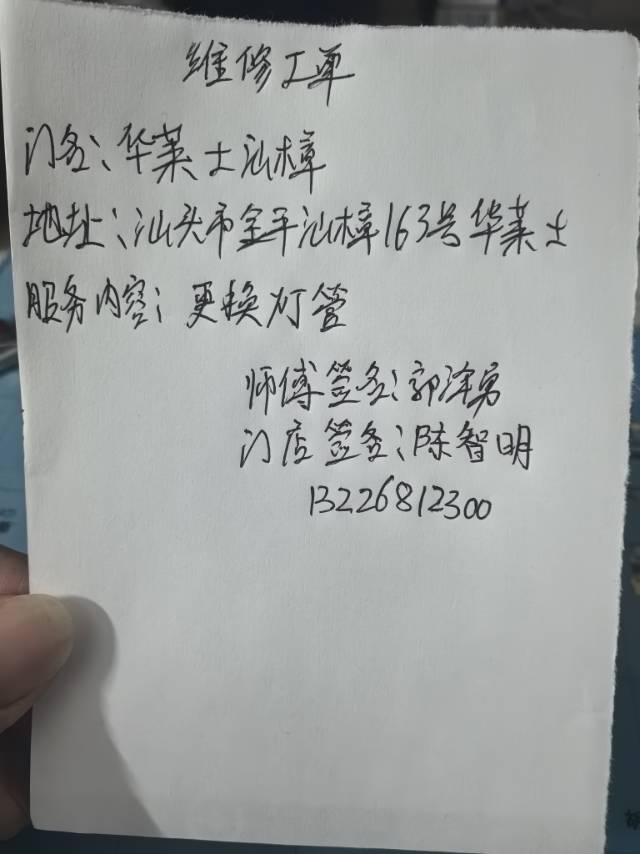 维修工单
门名：华莱士汕樟
地址：汕头市金平汕樟163号华莱士
服务内容：更换灯管
师傅签名：郭泽勇
门店签名：陈智明
13226812300